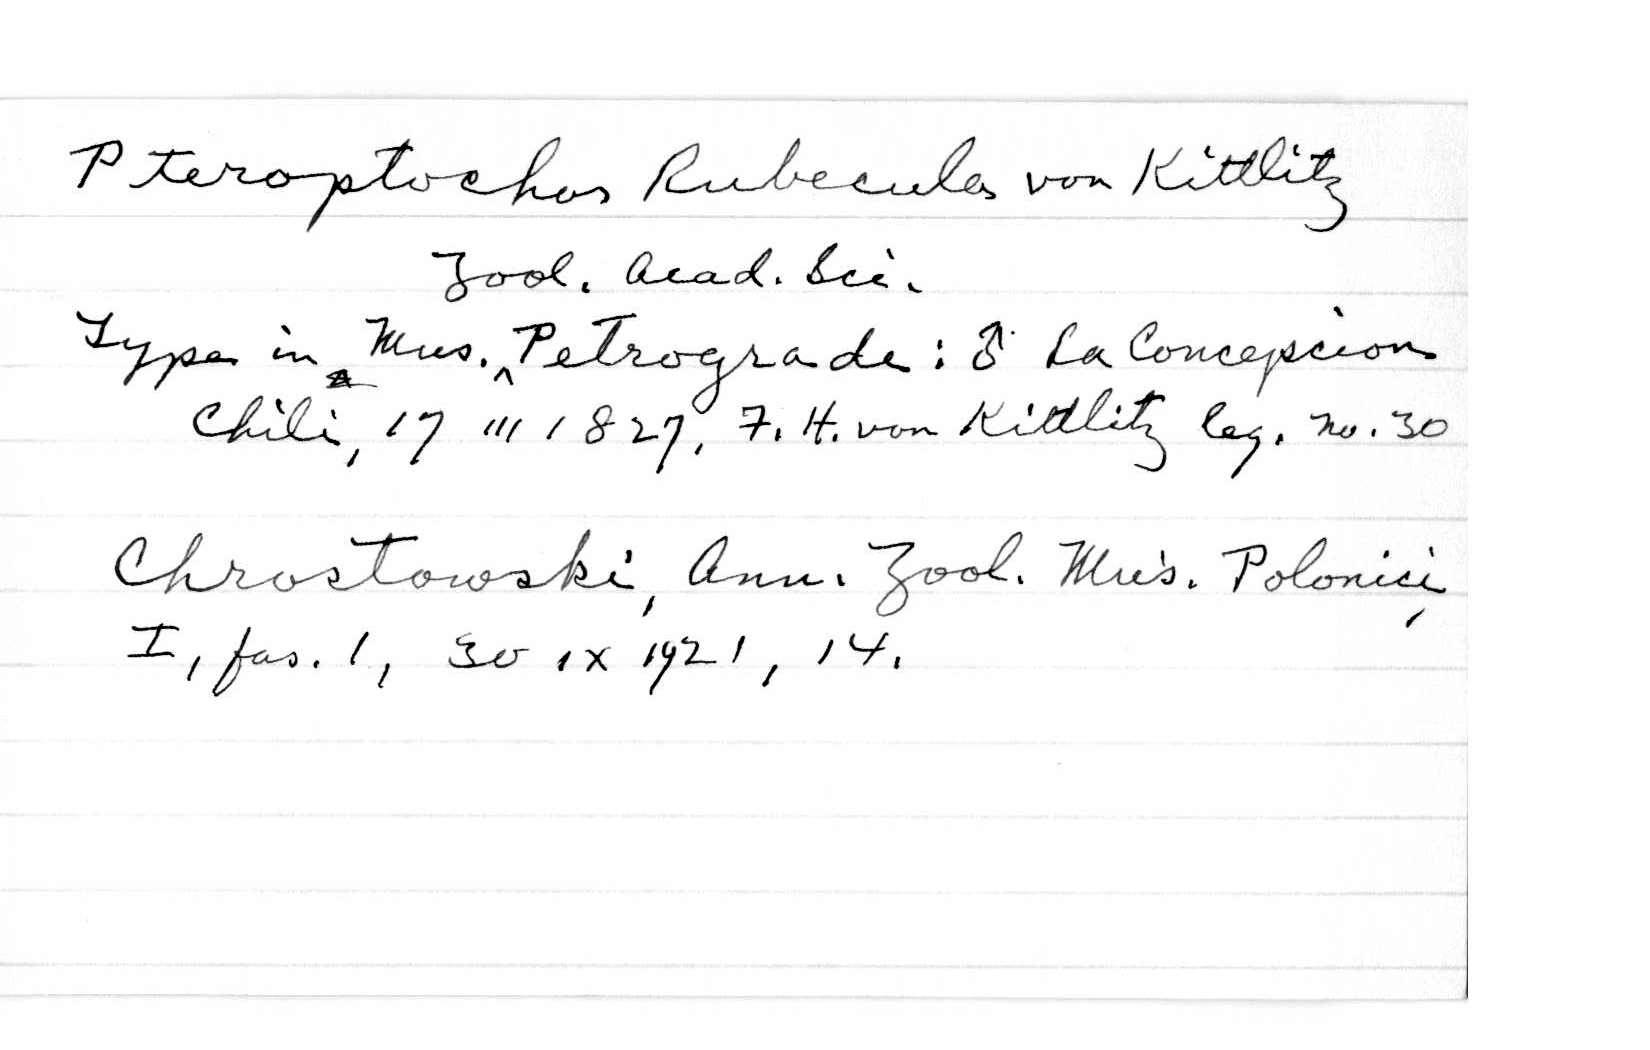 Pteroptochos Rubecula von Kittlitz
Zool. Acad. Sci.
Type in Mus. ^ Petrograde : ♂ La Concepcion
Chili, 17 III 1827, F. H. von Kittlitz leg. no. 30
Chrostowski, Ann. Zool. Mus. Polonici,
I, fas. 1, 30 IX 1921, 14.